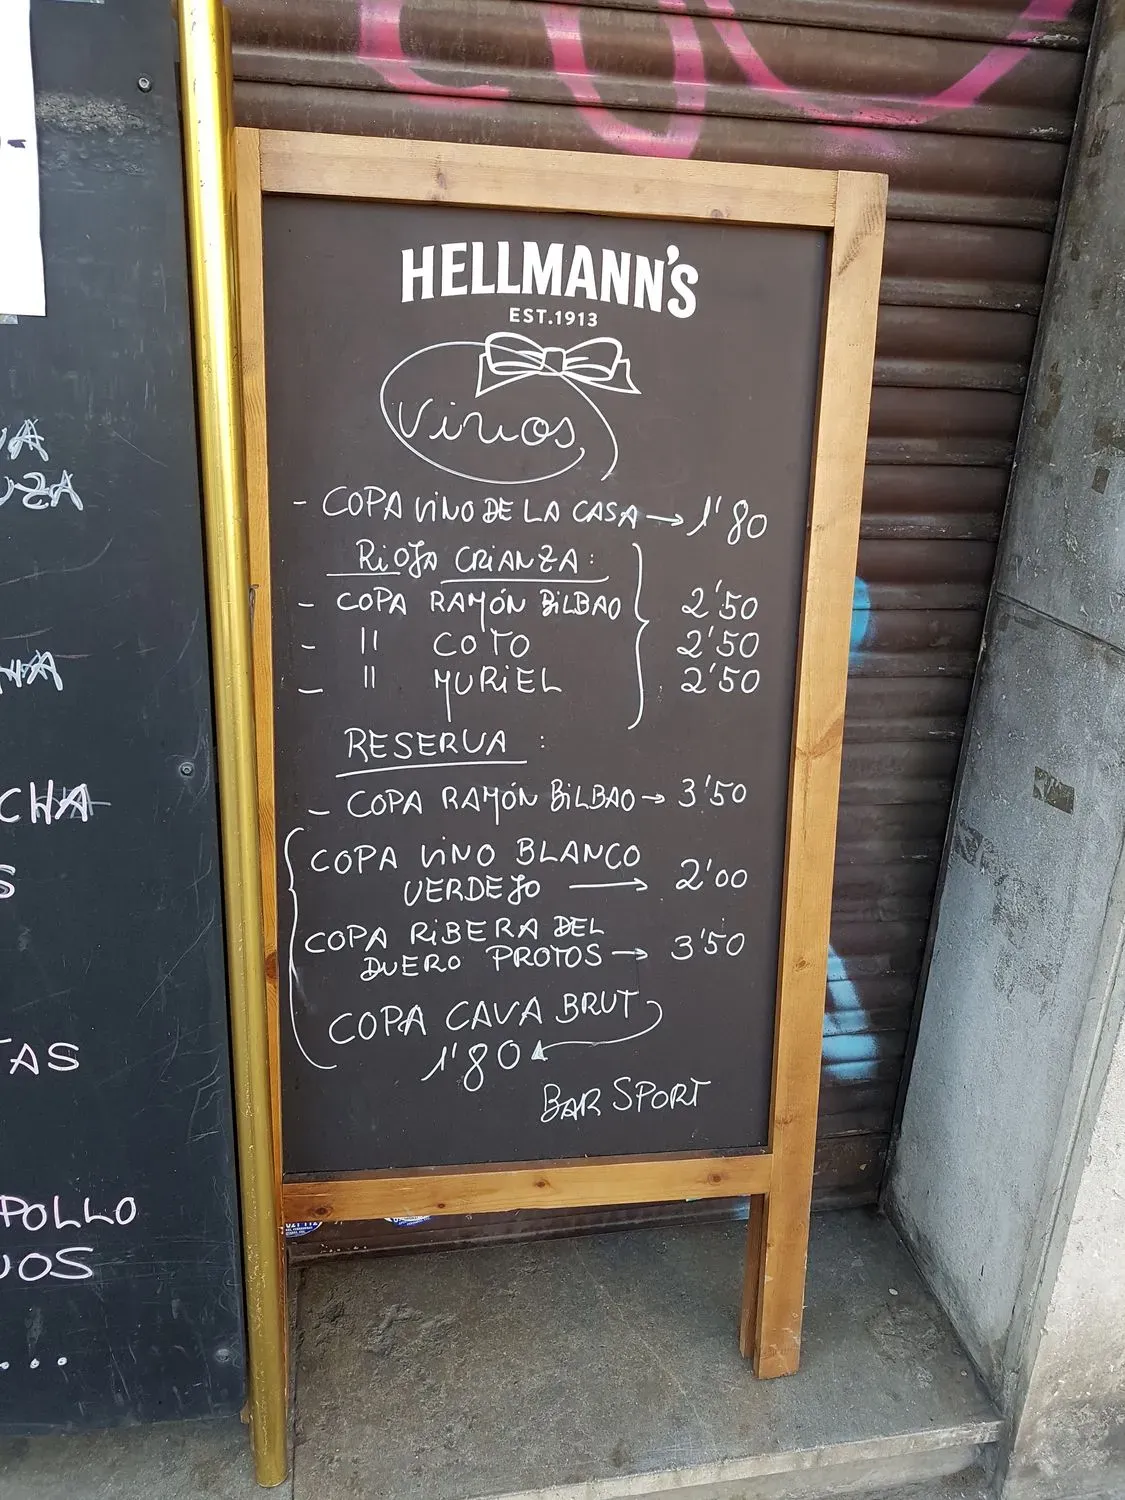 HELLMANN'S
EST.1913
Vinos
- COPA VINO DE LA CASA → 1'80
RIOJA CRIANZA:
- COPA RAMÓN BILBAO 2'50
- " COTO 2'50
- " MURIEL 2'50
RESERVA :
- COPA RAMÓN BILBAO → 3'50
COPA VINO BLANCO
VERDEJO → 2'00
COPA RIBERA DEL
DUERO PROTOS → 3'50
COPA CAVA BRUT
1'80
BAR SPORT
CHA
TAS
POLLO
...